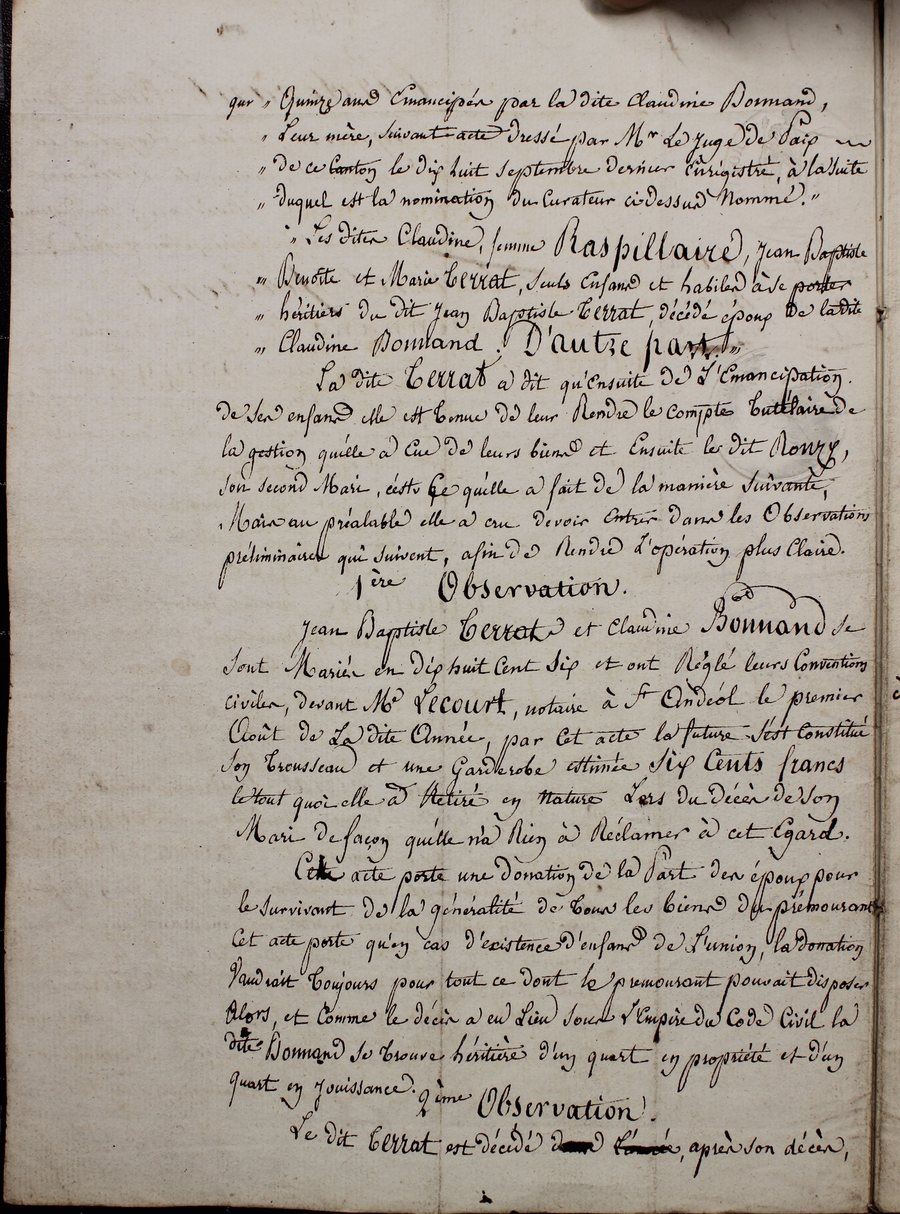 qur " Quinze ans Emancipés par la dite Claudine Bonnand,
" Leur mère, suivant acte dressé par Mr Le Juge de Paix
" de ce Canton le dix huit septembre dernier Enregistré, à la suite
" duquel est la nomination du Curateur ci dessus Nommé. "
" Les dites Claudine, femme Raspillaire, Jean Baptiste
" Benoîte et Marie Terrat, seuls Enfans et habiles à se porter
" héritiers du dit Jean Baptiste Terrat, décédé époux de la dite
" Claudine Bonnand. D'autre part. "
La dite Terrat a dit qu'Ensuite de L'Emancipation
de ses enfans elle est tenue de leur Rendre le compte tutélaire de
la gestion qu'elle a Eue de leurs biens et Ensuite le dit Rouzy,
son second Mari, c'est Ce qu'elle a fait de la manière suivante,
Mais au préalable elle a cru devoir Entrer dans les Observations
préliminaires qui suivent, afin de Rendre L'opération plus Claire.
1ère Observation.
Jean Baptiste Terrat et Claudine Bonnand se
sont Mariés en dix huit Cent Six et ont Réglé leurs Conventions
civiles, devant Me Lecourt, notaire à St Andéol le premier
Août de La dite Année, par Cet acte la future s'est Constitué
son Trousseau et une Garderobe estimée Six Cents francs
le tout quoi elle a Retiré en Nature Lors du décès de son
Mari de façon qu'elle n'a Rien à Réclamer à cet Egard.
Cette acte porte une donation de la Part des époux pour
le survivant de la généralité de Tous les biens du prémourant
Cet acte porte qu'en cas d'existence d'enfans de L'union, la donation
Vaudrait Toujours pour tout ce dont le premourant pouvait disposer
Alors, et Comme le décès a eu Lieu sous L'Empire du Code Civil la
dite Bonnand se trouve héritière d'un quart en propriété et d'un
quart en Jouissance.
2ème Observation.
Le dit Terrat est décédé dans L'année, après son décès,